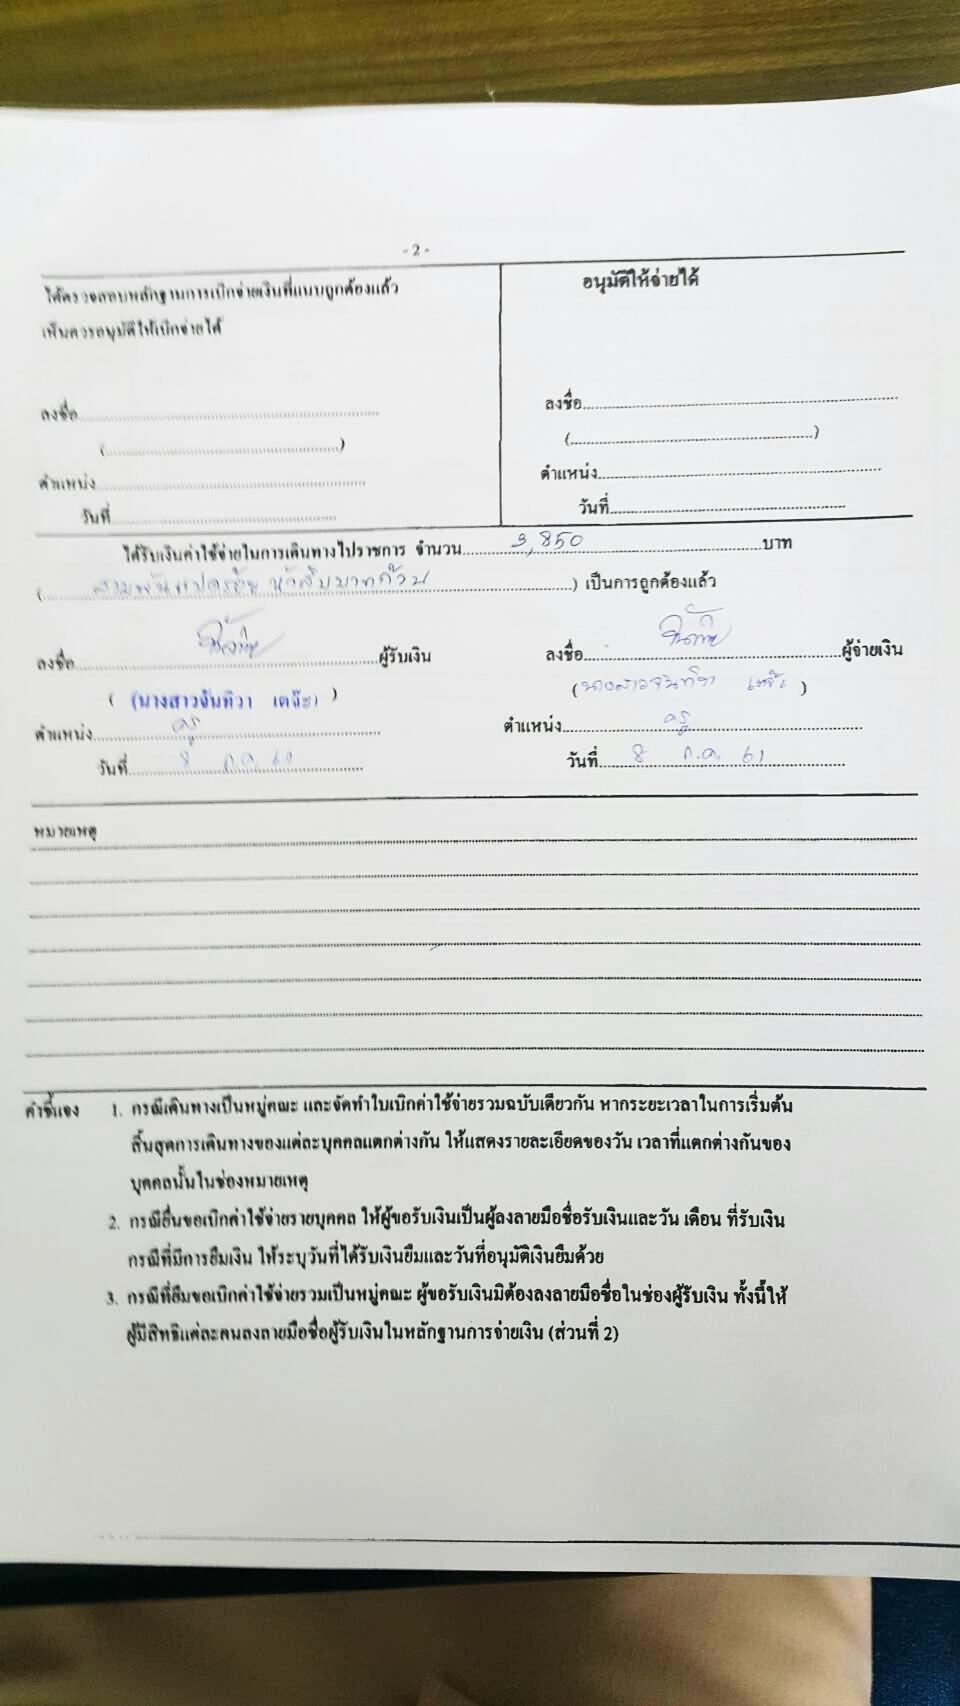 - 2 -
ได้ตรวจสอบหลักฐานการเบิกจ่ายเงินที่แนบถูกต้องแล้ว
เห็นควรอนุมัติให้เบิกจ่ายได้
ลงชื่อ
(....................)
ตำแหน่ง
วันที่
อนุมัติให้จ่ายได้
ลงชื่อ
(....................)
ตำแหน่ง
วันที่
ได้รับเงินค่าใช้จ่ายในการเดินทางไปราชการ จำนวน 3,850 บาท
(สามพันแปดร้อยห้าสิบบาทถ้วน) เป็นการถูกต้องแล้ว
ลงชื่อ ผู้รับเงิน
( (นางสาวจันทิวา เตจ๊ะ) )
ตำแหน่ง ครู
วันที่ 8 ก.ค. 61
ลงชื่อ ผู้จ่ายเงิน
(นางสาวจันทิวา เตจ๊ะ)
ตำแหน่ง ครู
วันที่ 8 ก.ค. 61
หมายเหตุ
คำชี้แจง 1. กรณีเดินทางเป็นหมู่คณะ และจัดทำใบเบิกค่าใช้จ่ายรวมฉบับเดียวกัน หากระยะเวลาในการเริ่มต้น
สิ้นสุดการเดินทางของแต่ละบุคคลแตกต่างกัน ให้แสดงรายละเอียดของวัน เวลาที่แตกต่างกันของ
บุคคลนั้นในช่องหมายเหตุ
2. กรณียื่นขอเบิกค่าใช้จ่ายรายบุคคล ให้ผู้ขอรับเงินเป็นผู้ลงลายมือชื่อรับเงินและวัน เดือน ที่รับเงิน
กรณีที่มีการยืมเงิน ให้ระบุวันที่ได้รับเงินยืมและวันที่อนุมัติเงินยืมด้วย
3. กรณีที่ยืมขอเบิกค่าใช้จ่ายรวมเป็นหมู่คณะ ผู้ขอรับเงินมิต้องลงลายมือชื่อในช่องผู้รับเงิน ทั้งนี้ให้
ผู้มีสิทธิแต่ละคนลงลายมือชื่อผู้รับเงินในหลักฐานการจ่ายเงิน (ส่วนที่ 2)